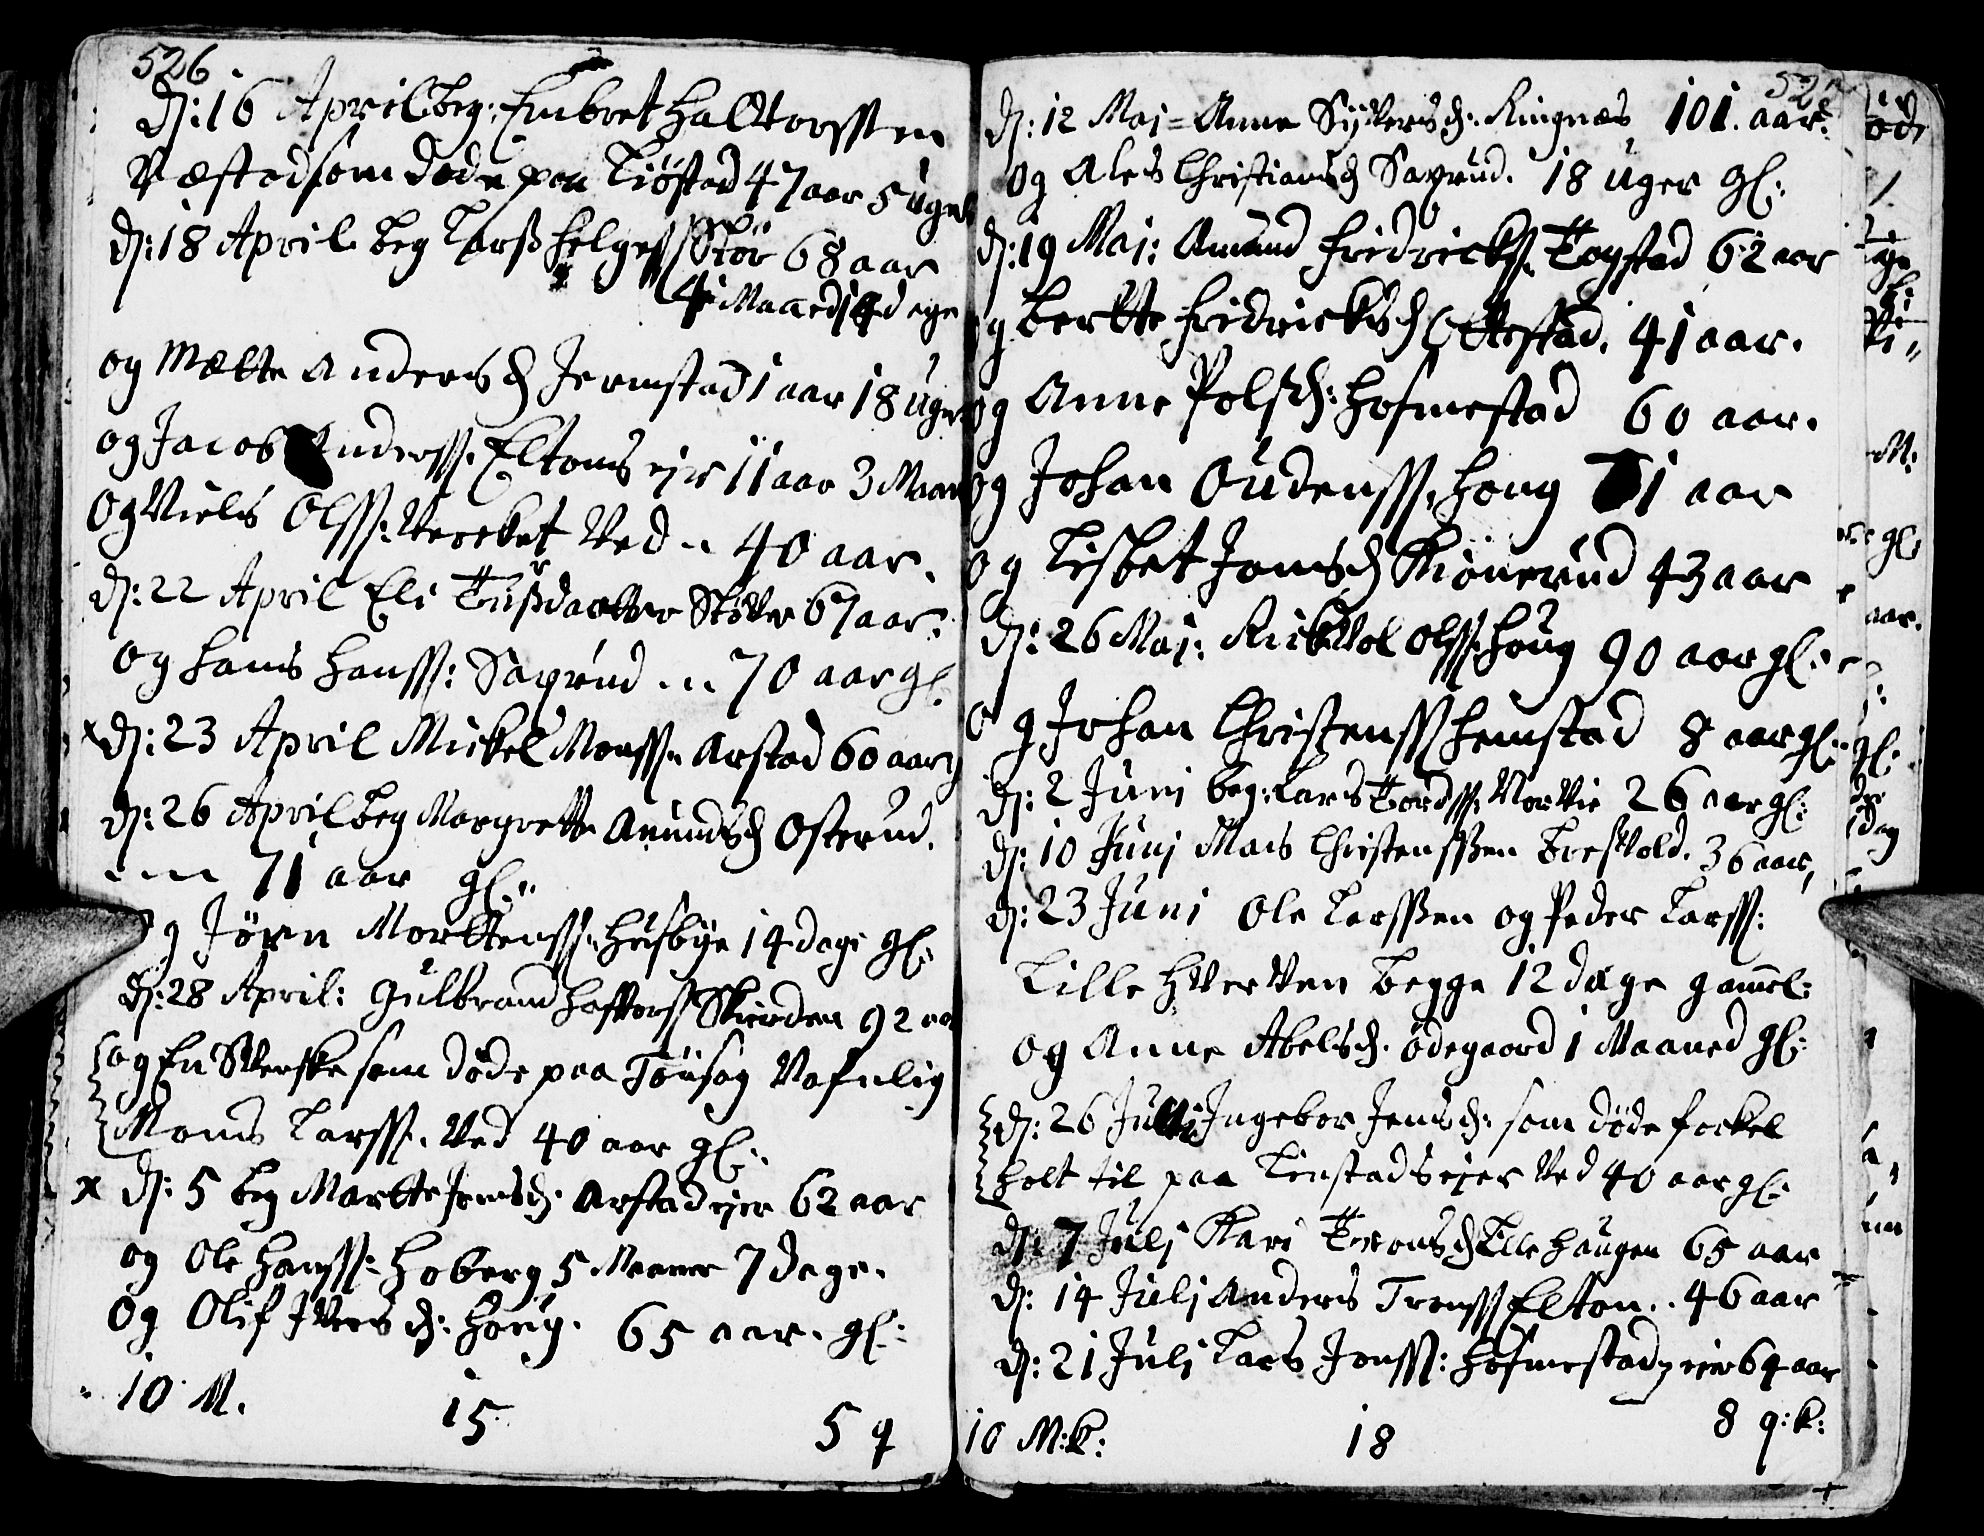 526
dj: 16 April beg: Embret Halvorssen
Næstad som døde paa Kiøstad 47 aar 5 uger
dj: 18 April beg Larss Helgess Stør 68 aar
4 Maaned 14 dage
og Mætte Andersd Jermstad 1 aar 18 uger
og Jacob Anderss. Eltons eje 11 aar 3 Maan
og Niels Olss: Vercket Ved 40 aar.
dj: 22 April Eli daatter Støver 67 aar:
og Hans Hanss: Sagrud 70 aar gl:
x dj: 23 April Mickel Monss. Arstad 60 aar g
dj: 26 April beg Margrette Amundsd Osterud.
71 aar gl:
og Jørn Mortenss. Husbye 14 dage gl:
dj: 28 April: Gulbrand Skierden 92 aar
og En Svenske som døde paa Tønsag Nafnlig
Mons Larss. Ved 40 aar gl:
x dj: 5 beg Marte Jensd: Arstad eje 62 aar
og Ole Hanss: Hoberg 5 Maaner 7 dage.
og Olif Iversd: Houg. 65 aar. gl:
10 M. 15 5 q
dj: 12 Maj = Anne Syversd: Ringnæs 101. aar:
og Ales Christiansd Sagrud. 18 uger gl:
dj: 19 Maj: Amund Fridrickss. Togstad 62 aar
og Berte Fridricksd Ottestad. 41 aar.
og Anne Polsd: Hofmestad 60 aar.
og Johan Oudenss. Houg 1 aar
og Lisbet Jonsd Kiønerud 43 aar
dj: 26 Maj: Olss. Houg 90 aar gl:
og Johan Christenss Hemstad 8 aar gl:
dj: 2 Juni beg: Lars Tordss. Norvie 26 aar gl:
dj: 10 Junj Mads Christenssen Bresvold. 36 aar,
dj: 23 Juni Ole Larssen og Peder Larss:
Lille Hverven begge 12 dage gamel:
og Anne Abelsd. Ødegaard 1 Maaned gl:
dj: 26 Ingebor Jensd: som døde
holt til paa Linstad Ved 40 aar gl:
dj: 7 Julj Kari Tronsd Lille Haugen 65 aar
dj: 14 Julj Anders Tronss Elton. 46 aar
dj: 21 Julj Lars Jonss: Hofmestad eje 64 aar
10 M:k: 18 8 q:k: